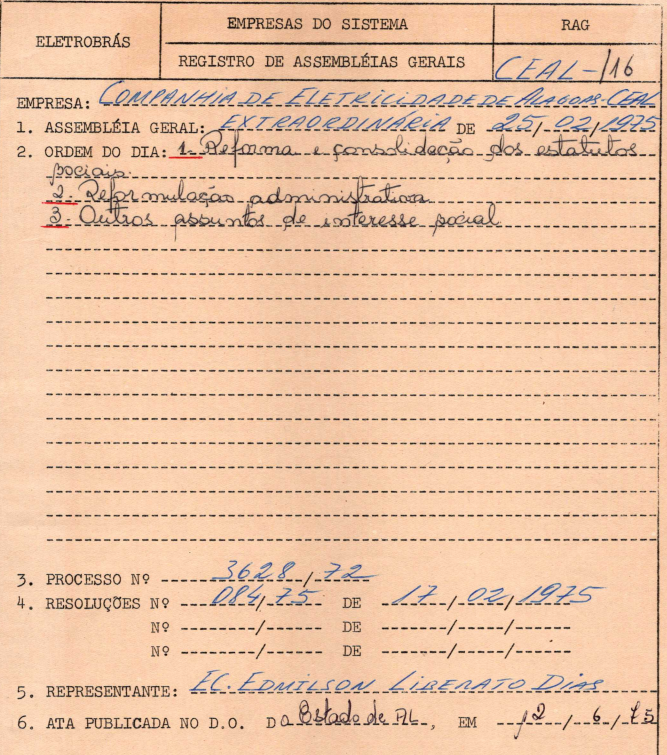 ELETROBRÁS
EMPRESAS DO SISTEMA
RAG
REGISTRO DE ASSEMBLÉIAS GERAIS
CEAL-/16
EMPRESA: COMPANHIA DE ELETRICIDADE DE ALAGOAS-CEAL
1. ASSEMBLÉIA GERAL: EXTRAORDINÁRIA DE 25/02/1975
2. ORDEM DO DIA: 1- Reforma e consolidação dos estatutos
sociais.
2- Reformulação administrativa
3- Outros assuntos de interesse social
3. PROCESSO Nº 3628/72
4. RESOLUÇÕES Nº 084/75 DE 17/02/1975
Nº -------/------ DE ------/----/------
Nº -------/------ DE ------/----/------
5. REPRESENTANTE: EC. EDMILSON LIBERATO DIAS
6. ATA PUBLICADA NO D.O. DO Estado de AL, EM 12/6/75